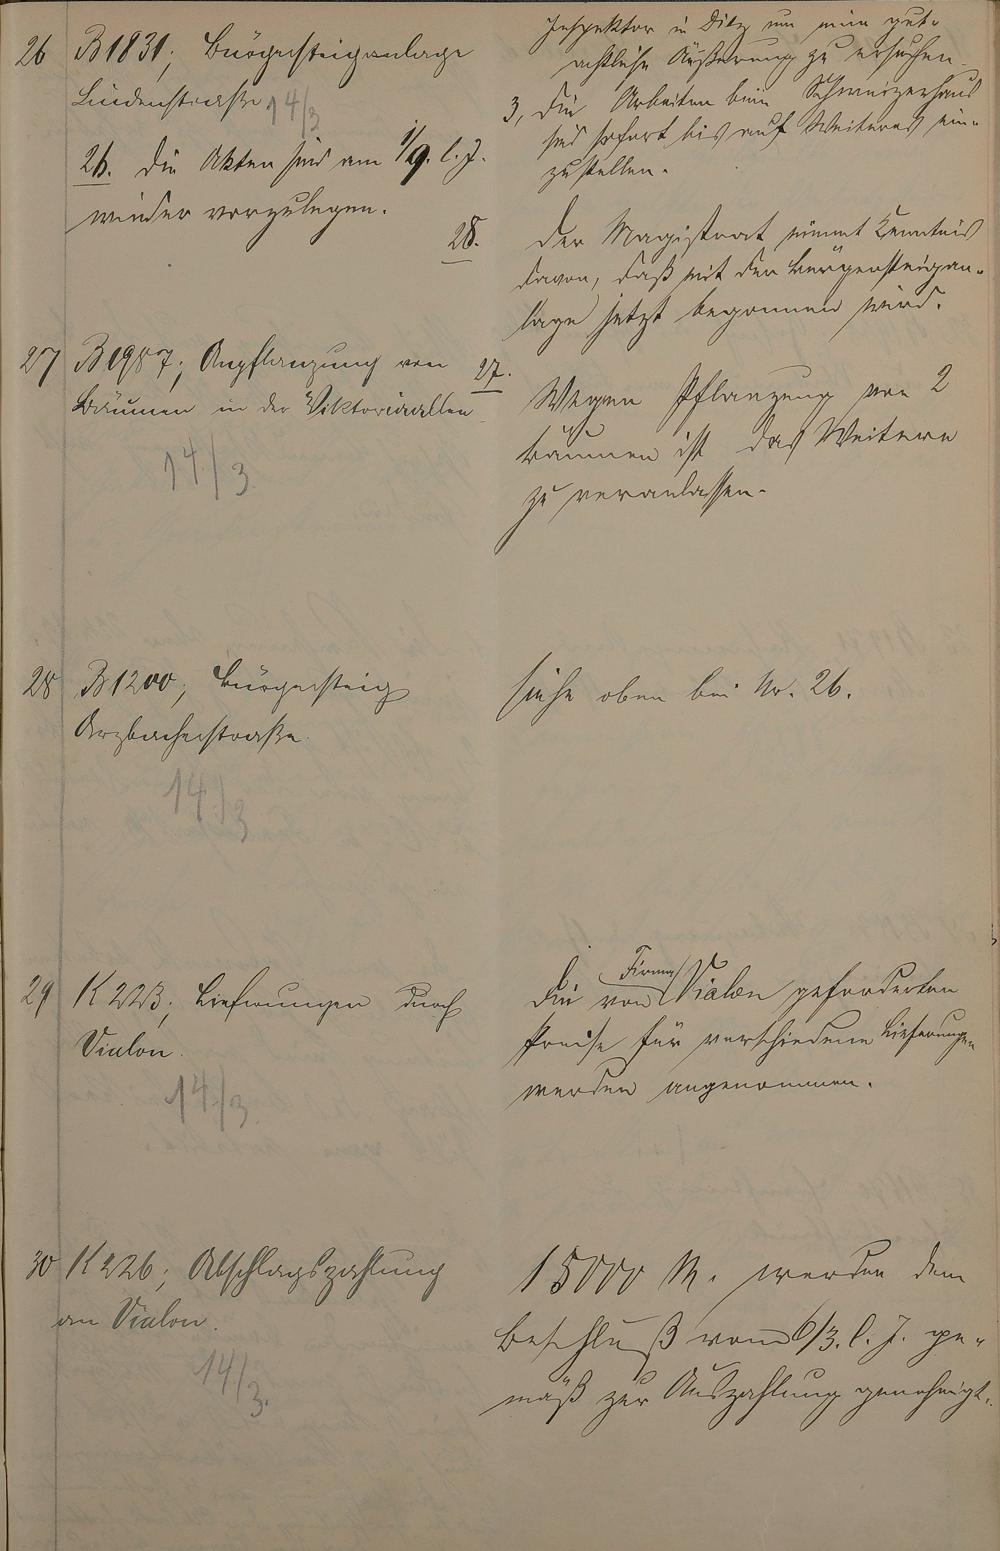 Inspektor in Diez um eine gut-
achtliche Äußerung zu ersuchen.
3, die Arbeiten beim Schweizerhaus
sind sofort bis auf Weiteres ein-
zustellen.
26 B1831; Bürgersteiganlage
Lindenstraße
14/3
26. die Akten sind am 1/9. l. J.
wieder vorzulegen.
28. der Magistrat nimmt Kenntnis
davon, daß mit der Bürgersteigan-
lage jetzt begonnen wird.
27 B1987; Anpflanzung von
Bäumen in der Viktoriaallee
14/3.
27. Wegen Pflanzung von 2
Bäumen ist das Weitere
zu veranlassen.
28 B1200; Bürgersteig
Arzbacherstraße.
14/3
siehe oben bei No. 26.
29 K223; Lieferungen durch
Vialon.
14/3.
die von Firma Vialon geforderten
Preise für verschiedene Lieferungen
werden angenommen.
30 K226; Abschlagszahlung
an Vialon.
14/3.
15000 M. werden dem
Beschluß vom 6/3. l. J. ge-
mäß zur Auszahlung genehmigt.